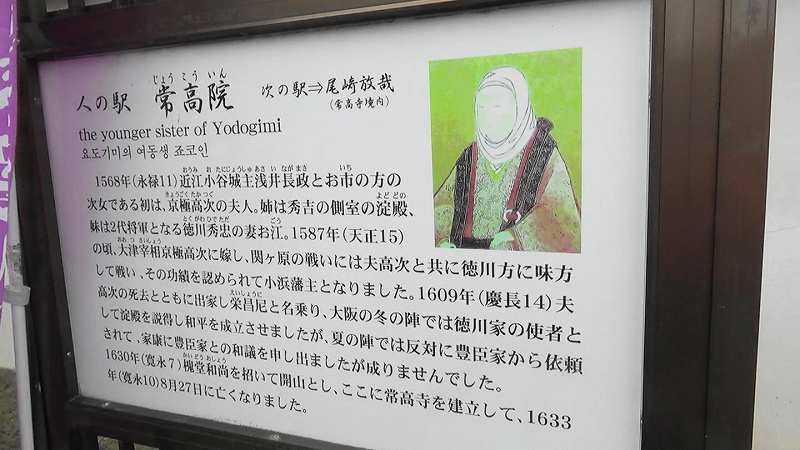 じょう こう いん
人の駅 常高院 次の駅⇒尾崎放哉
(常高寺境内)
the younger sister of Yodogimi
요도기미의 여동생 죠코인
おうみ お たにじょうしゅ あさ い ながまさ いち
1568年(永禄11)近江小谷城主浅井長政とお市の方の
きょうごくたかつぐ よど どの
次女である初は、京極高次の夫人。姉は秀吉の側室の淀殿、
とくがわ ひでただ ごう
妹は2代将軍となる徳川秀忠の妻お江。1587年(天正15)
おお つ さいしょう
の頃、大津宰相京極高次に嫁し、関ヶ原の戦いには夫高次と共に徳川方に味方
して戦い、その功績を認められて小浜藩主となりました。1609年(慶長14)夫
えいしょうに
高次の死去とともに出家し栄昌尼と名乗り、大阪の冬の陣では徳川家の使者と
して淀殿を説得し和平を成立させましたが、夏の陣では反対に豊臣家から依頼
されて、家康に豊臣家との和議を申し出ましたが成りませんでした。
かい どう おしょう
1630年(寛永7)槐堂和尚を招いて開山とし、ここに常高寺を建立して、1633
年(寛永10)8月27日に亡くなりました。